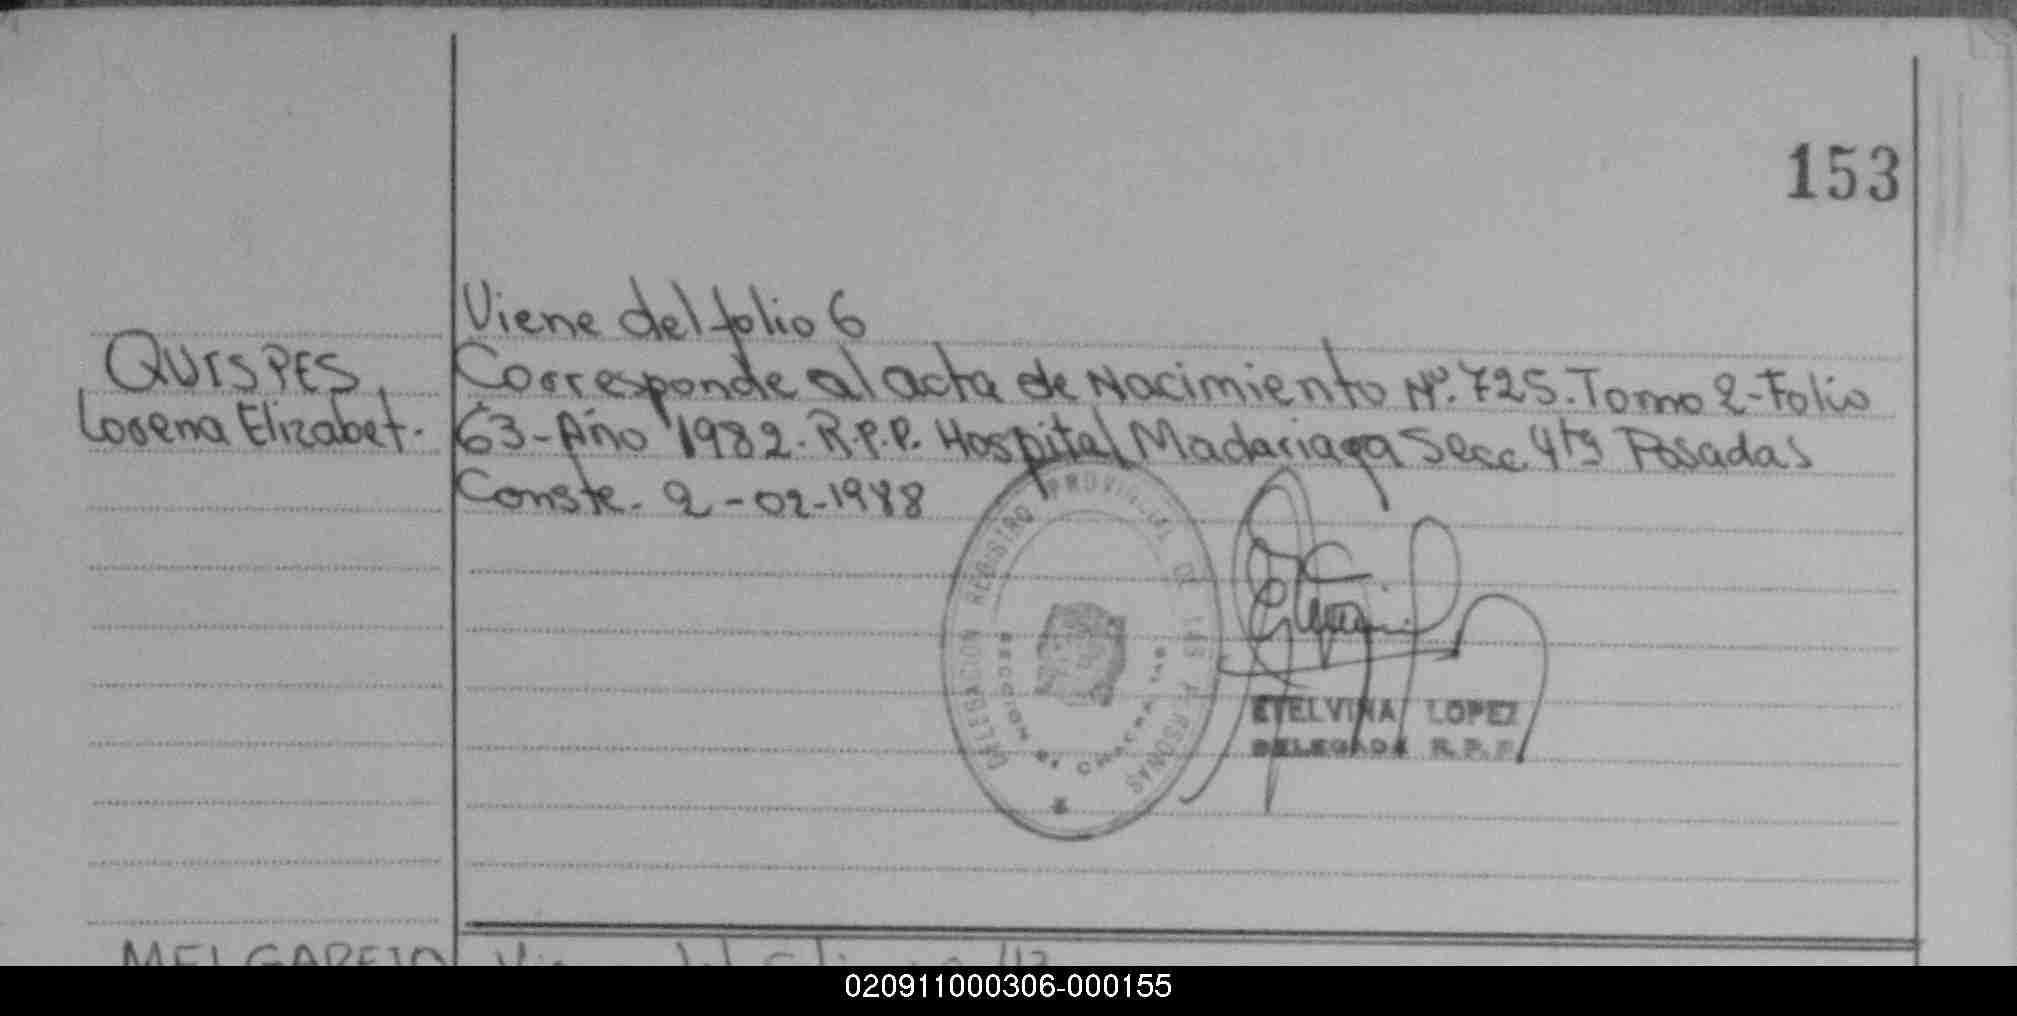 153
Viene del folio 6
QUISPES,
Lorena Elizabet.
Corresponde al acta de Nacimiento Nº. 725. Tomo 2-Folio
63-Año 1982. R.P.P. Hospital Madariaga Secc 4ta Posadas
Conste. 2-02-1988
DELEGACION REGISTRO PROVINCIAL DE LAS PERSONAS
SECCION
ETELVINA LOPEZ
DELEGADA R.P.P.
MELGAREJO
020911000306-000155